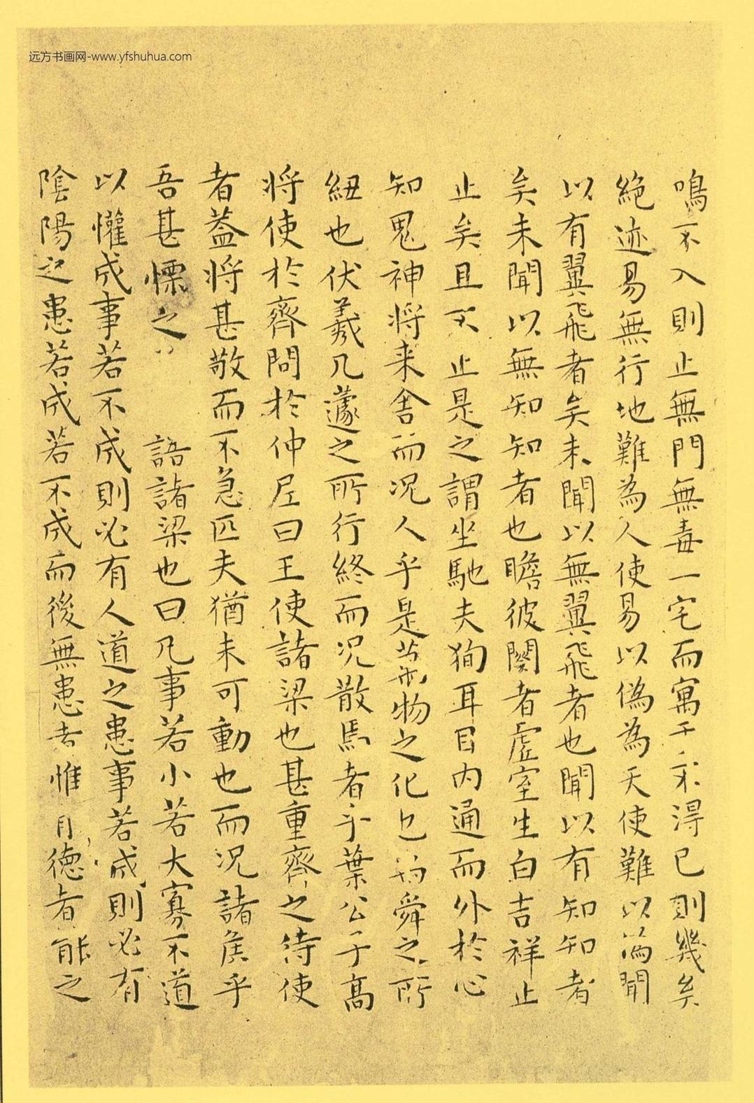 远方书画网-www.yfshuhua.com
鳴不入則止無門無毒一宅而寓于不得已則幾矣
絕迹易無行地難為人使易以偽為天使難以偽聞
以有翼飛者矣未聞以無翼飛者也聞以有知知者
矣未聞以無知知者也瞻彼闋者虛室生白吉祥止
止矣且不止是之謂坐馳夫狥耳目内通而外於心
知鬼神将来舍而况人乎是萬物之化也禹舜之所
紐也伏羲几蘧之所行終而况散焉者乎葉公子高
将使於齊問於仲尼曰王使諸梁也甚重齊之待使
者葢将甚敬而不急匹夫猶未可動也而况諸侯乎
吾甚慄之子語諸梁也曰凡事若小若大寡不道
以懽成事若不成則必有人道之患事若成則必有
陰陽之患若成若不成而後無患者惟有德者能之